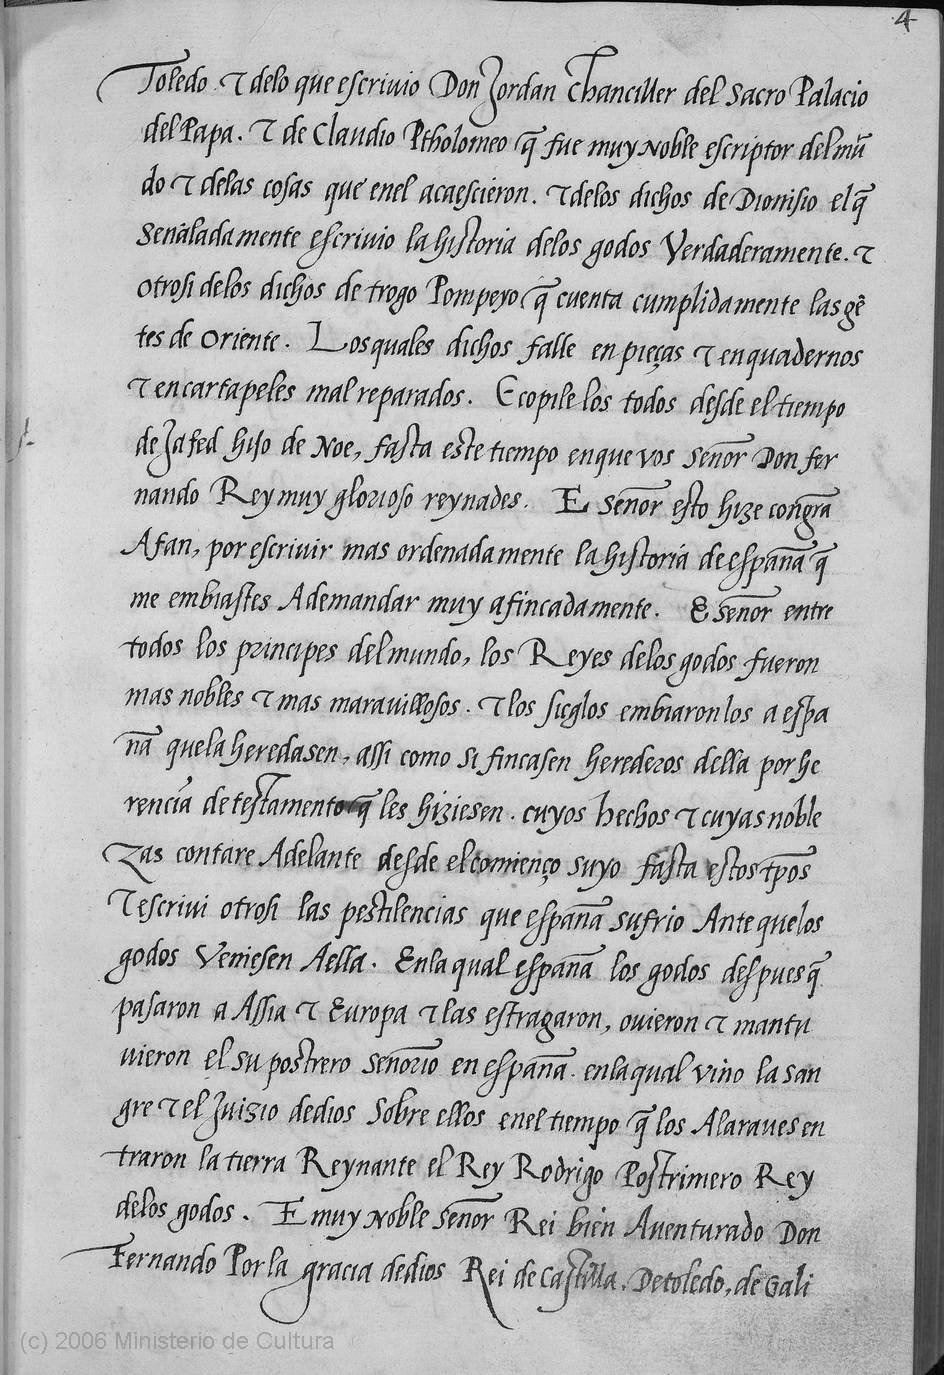 4
Toledo. ⁊ delo que escrivio Don Jordan Chanciller del Sacro Palacio
del Papa. ⁊ de Claudio Ptholomeo q̃ fue muy Noble escriptor del mũ
do ⁊ delas cosas que enel acaescieron. ⁊ delos dichos de Dionisio el q̃
Señaladamente escrivio la historia delos godos Verdaderamente. ⁊
otrosi delos dichos de trogo Pompeyo q̃ cuenta cumplidamente las gẽ
tes de Oriente. Los quales dichos falle en pieças ⁊ en quadernos
⁊ en cartapeles mal reparados. E copile los todos desde el tiempo
de Jafed hijo de Noe, fasta este tiempo en que vos Señor Don fer
nando Rey muy glorioso reynades. E Señor esto hize con grã
Afan, por escrivir mas ordenadamente la historia de españa q̃
me embiastes Ademandar muy afincadamente. E Señor entre
todos los principes del mundo, los Reyes delos godos fueron
mas nobles ⁊ mas maravillosos. ⁊ los siglos embiaron los a espa
ña que la heredasen, assi como si fincasen herederos della por he
rencia de testamento q̃ les hiziesen. cuyos hechos ⁊ cuyas noble
zas contare Adelante desde el comienço suyo fasta estos tp̃os
⁊ escrivi otrosi las pestilencias que españa sufrio Ante que los
godos Veniesen Aella. En la qual españa los godos despues q̃
pasaron a Assia ⁊ Europa ⁊ las estragaron, ouieron ⁊ mantu
uieron el su postrero señorio en españa. en la qual vino la san
gre ⁊ el Juizio de dios Sobre ellos en el tiempo q̃ los Alaraues en
traron la tierra Reynante el Rey Rodrigo Postrimero Rey
delos godos. E muy Noble Señor Rei bien Auenturado Don
Fernando Por la gracia de dios Rei de Castilla. De toledo, de Gali
(c) 2006 Ministerio de Cultura